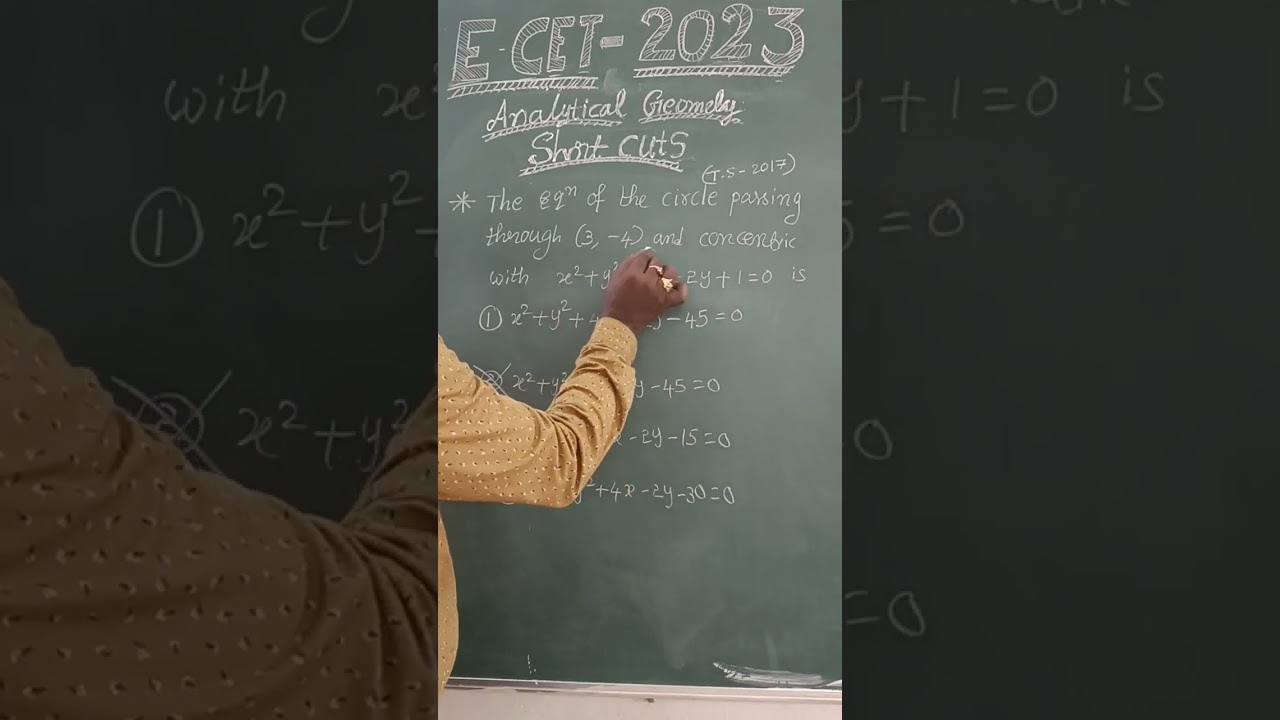 E-CET-2023
Analytical Geomely
Short Cuts
(T.S-2017)
* The Eqⁿ of the circle passing
through (3, -4) and concentric
with x²+y² -2y+1=0 is
① x²+y²+4 -45=0
x²+y² y-45=0
-2y-15=0
+4x-2y-30=0